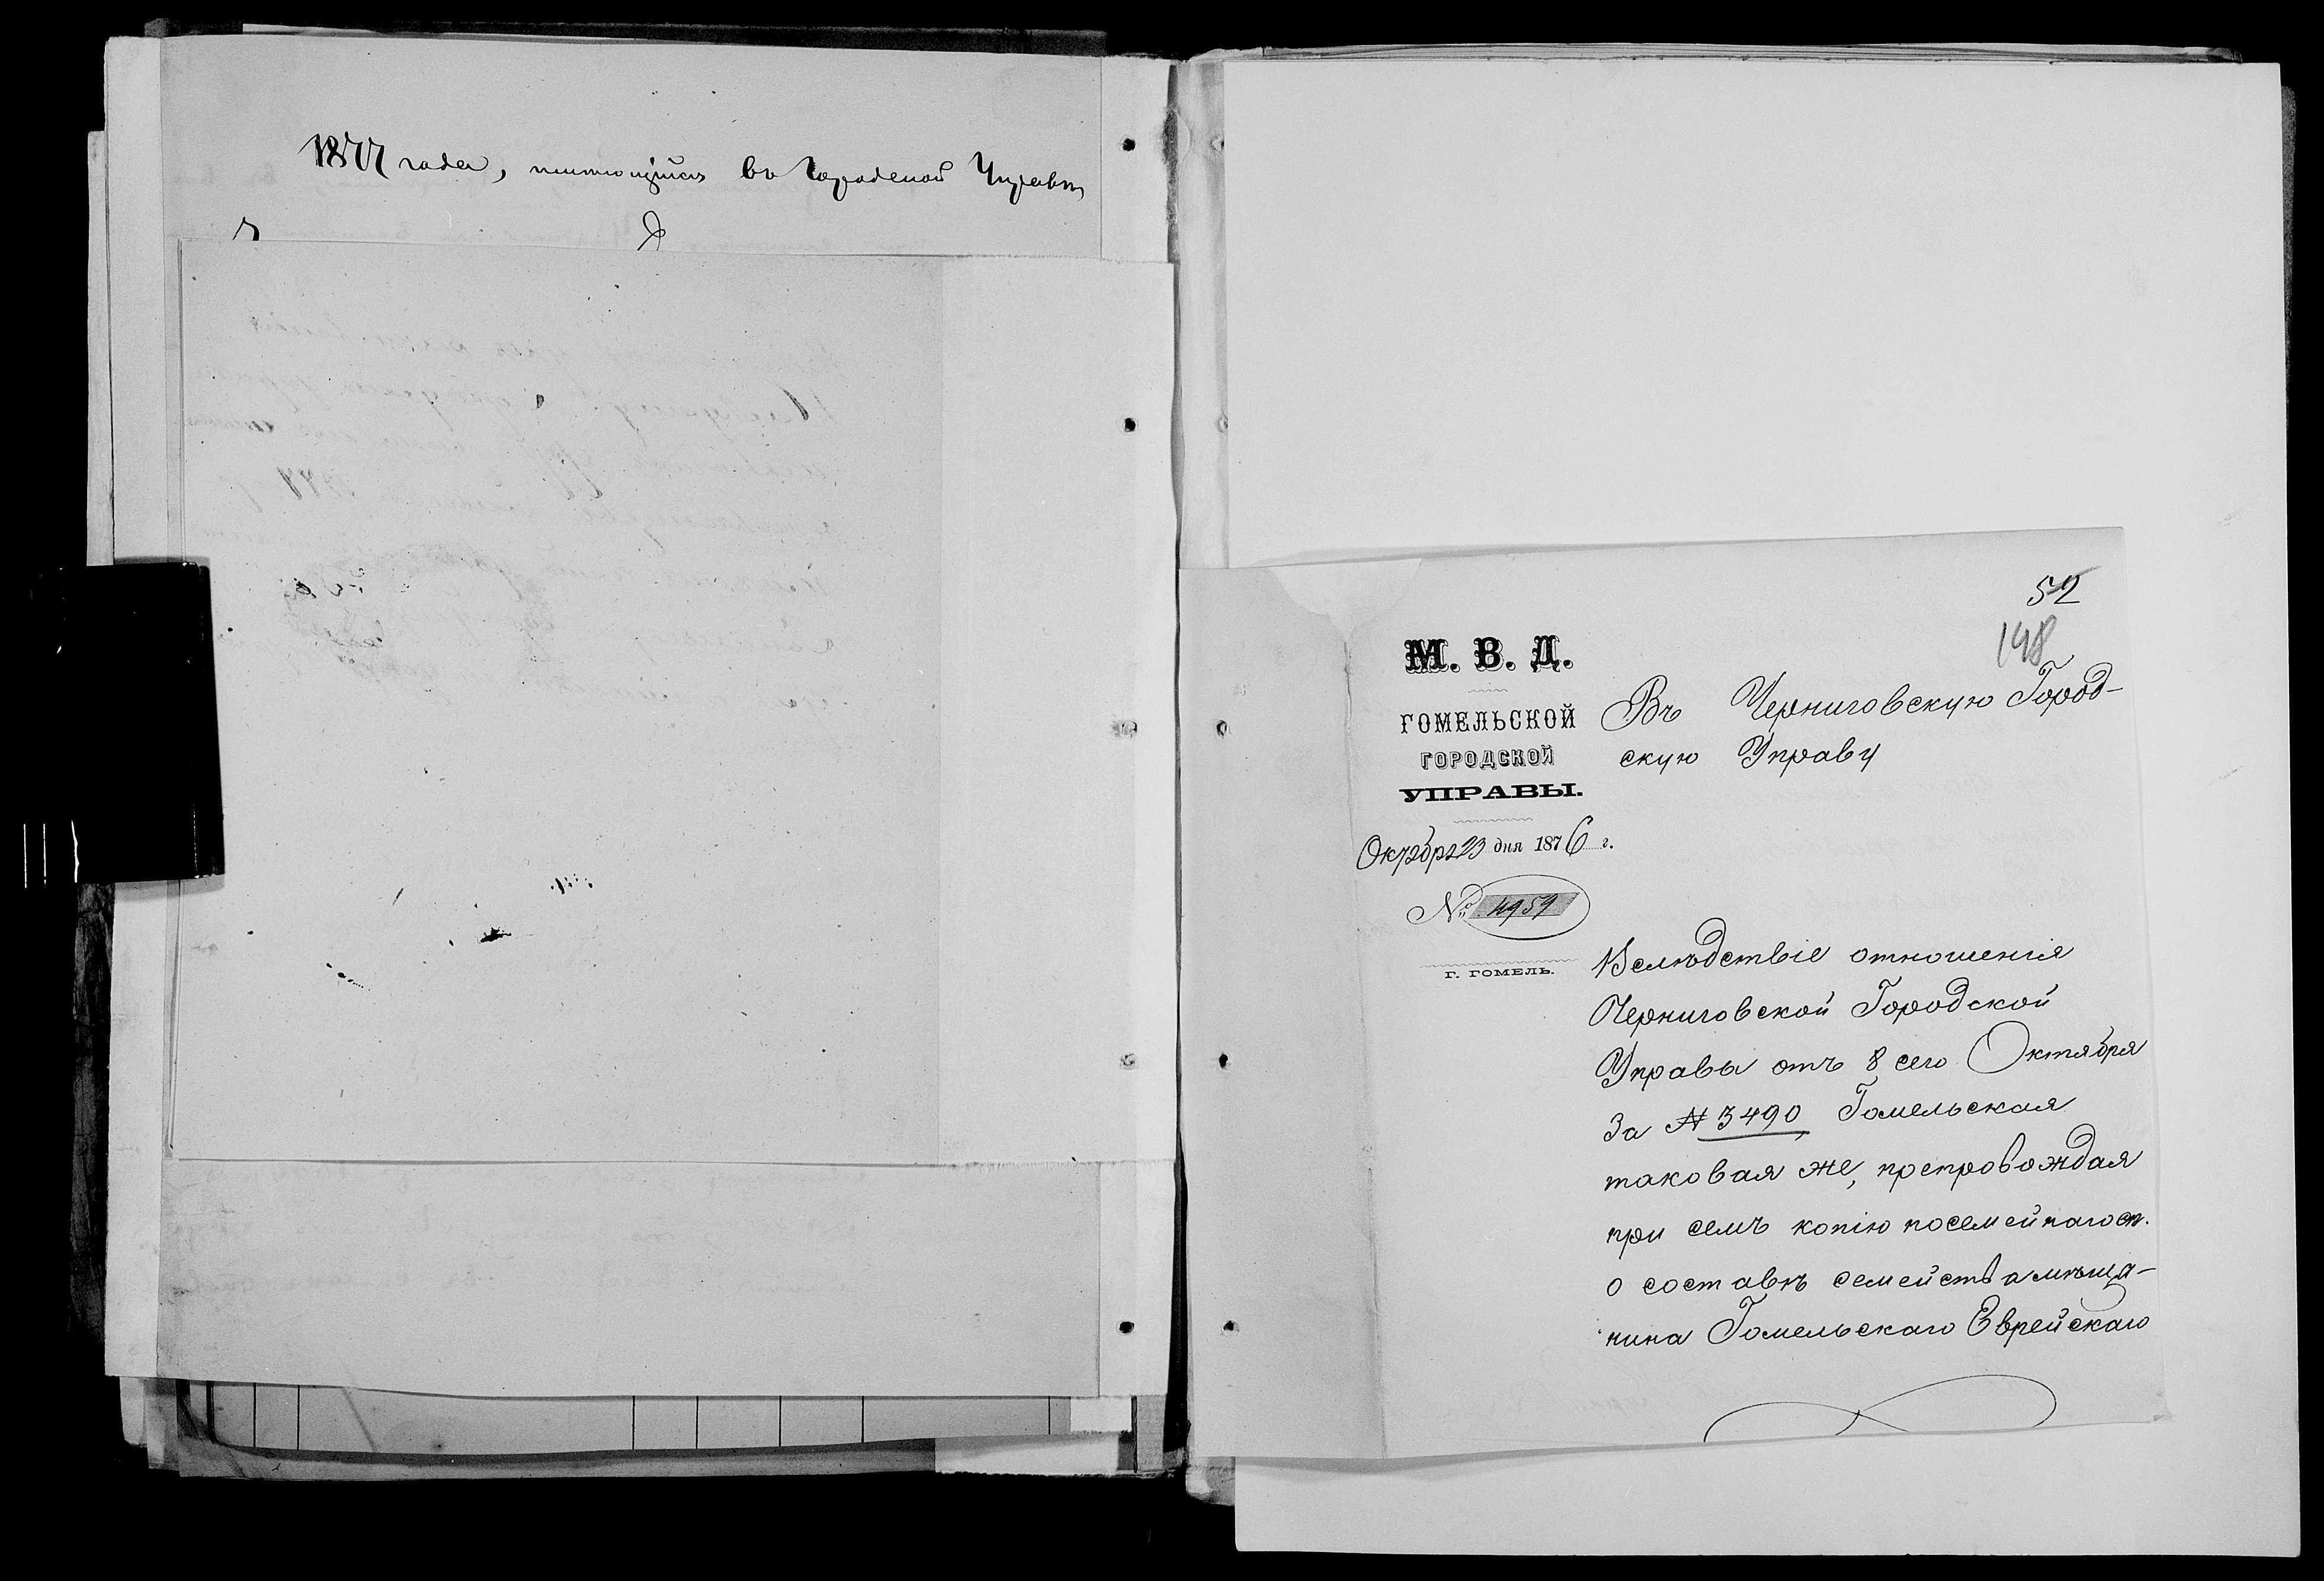 1877 года, имеющійся въ Городской Управѣ
52
148
М. В. Д.
ГОМЕЛЬСКОЙ
ГОРОДСКОЙ
УПРАВЫ.
Октября 23 дня 1876 г.
№ 4959
Г. ГОМЕЛЬ.
Въ Черниговскую Город-
скую Управу
Вслѣдствіе отношенія
Черниговской Городской
Управы отъ 8 сего Октября
за № 3490, Гомельская
таковая же, препровождая
при семъ копію посемейнаго сп.
о составѣ семейства мѣща-
нина Гомельскаго Еврейскаго